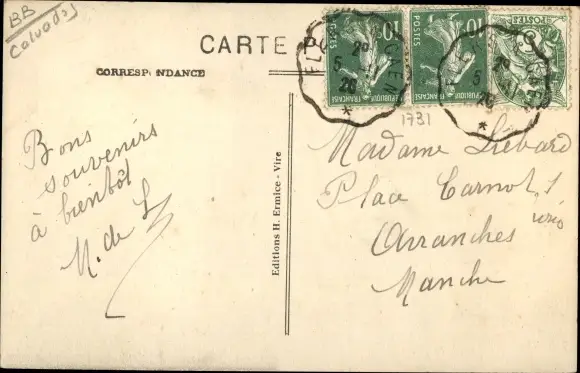 BB
Calvados
CARTE P
CORRESPONDANCE
10
POSTES
REPUBLIQUE FRANÇAISE
10
POSTES
REPUBLIQUE FRANÇAISE
POSTES
CAEN
2º
5
26
*
2º
5
26
*
1731
Bons
souvenirs
à bientôt
M. de L
Editions H. Ermice - Vire
Madame Liébard
Place Carnot 1
Avranches
Manche